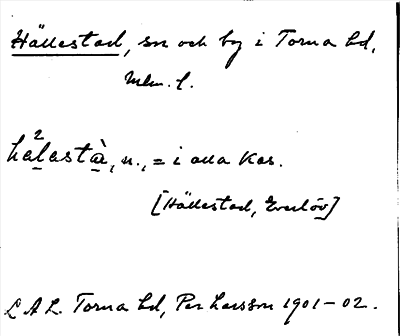 Hällestad, sn och by i Torna hd,
Mlm. l.
ha²lastà, n., = i alla kas.
[Hällestad, Everlöv]
L A L. Torna hd, Per Larsson 1901-02.